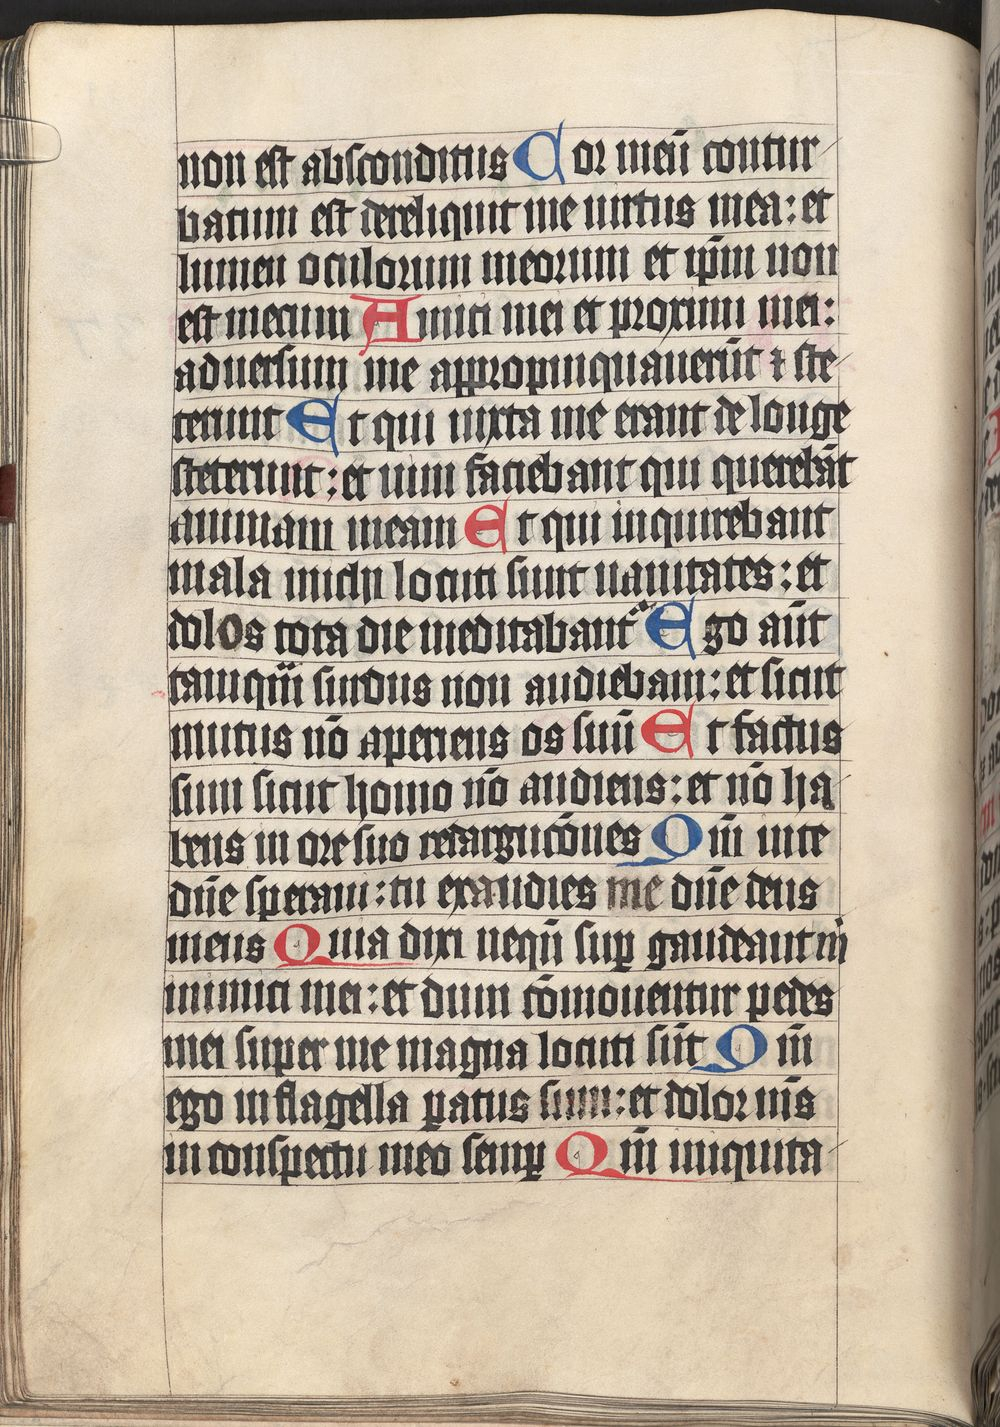 non est absconditus Cor meū contur
batum est dereliquit me uirtus mea: et
lumen oculorum meorum et ip̄m non
est mecum Amici mei et proximi mei:
aduersum me appropinquauerūt ⁊ ste
terunt Et qui iuxta me erant de longe
steterunt: et uim faciebant qui querebāt
animam meam Et qui inquirebant
mala michi locuti sunt uanitates: et
dolos tota die meditabant᷑ Ego aūt
tamqͣm̄ surdus non audiebam: et sicut
mutus nō aperiens os suū Et factus
sum sicut homo nō audiens: et nō ha
bens in ore suo redargucōnes Qm̄ in te
dn̄e speraui: tu exaudies me dn̄e deus
meus Quia dixi neqn̄ suꝑ gaudeant m̄
inimici mei: et dum cōmouentur pedes
mei super me magna locuti sūt Qm̄
ego in flagella ꝑatus sum: et dolor m̄s
in conspectu meo semꝑ Qm̄ iniquita